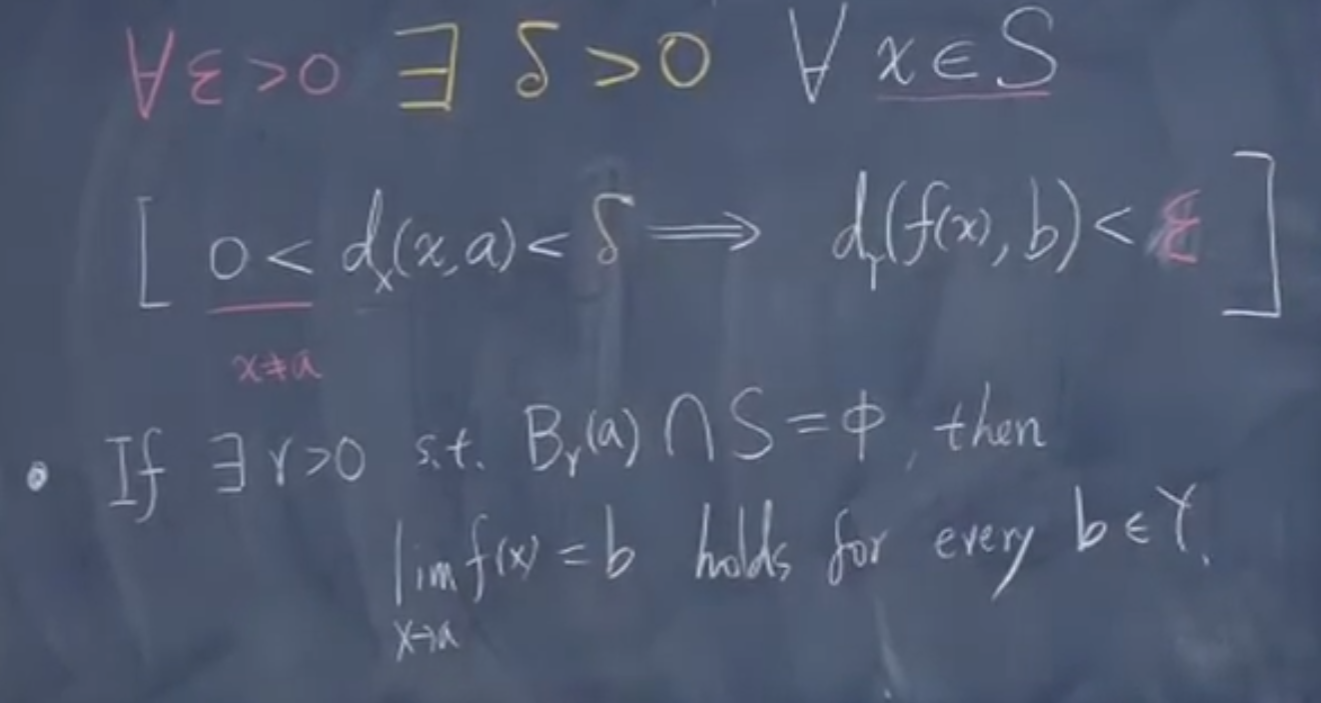 ∀ε>0 ∃ δ>0 ∀ x∈S
[ 0< d_X(x,a)< δ ⟹ d_Y(f(x), b)< ε ]
x≠a
• If ∃ r>0 s.t. B_r(a) ∩ S = ϕ, then
lim f(x) = b holds for every b ∈ Y.
x→a